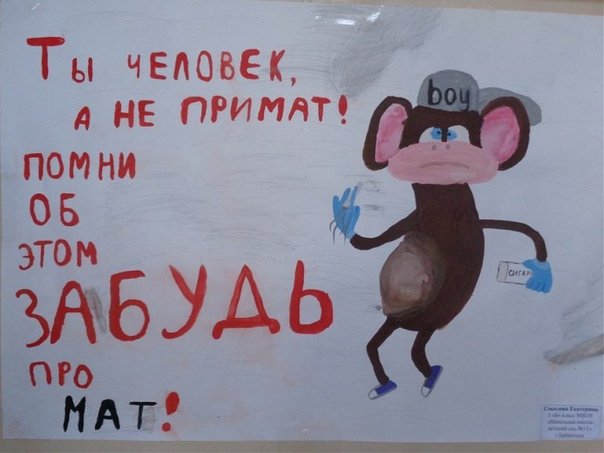 Ты человек,
а не примат!
помни
об
этом
забудь
про
мат!
boy
сигар
Соколова Екатерина